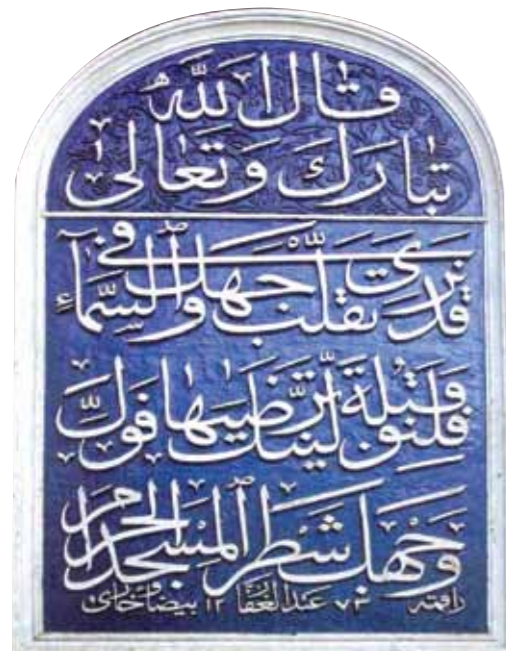 قال الله
تبارك وتعالى
قد نرى تقلب وجهك في السماء
فلنولينك قبلة ترضيها فول
وجهك شطر المسجد الحرام
عبد الغفار بيضاوي